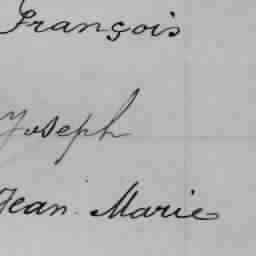 François
Joseph
Jean Marie